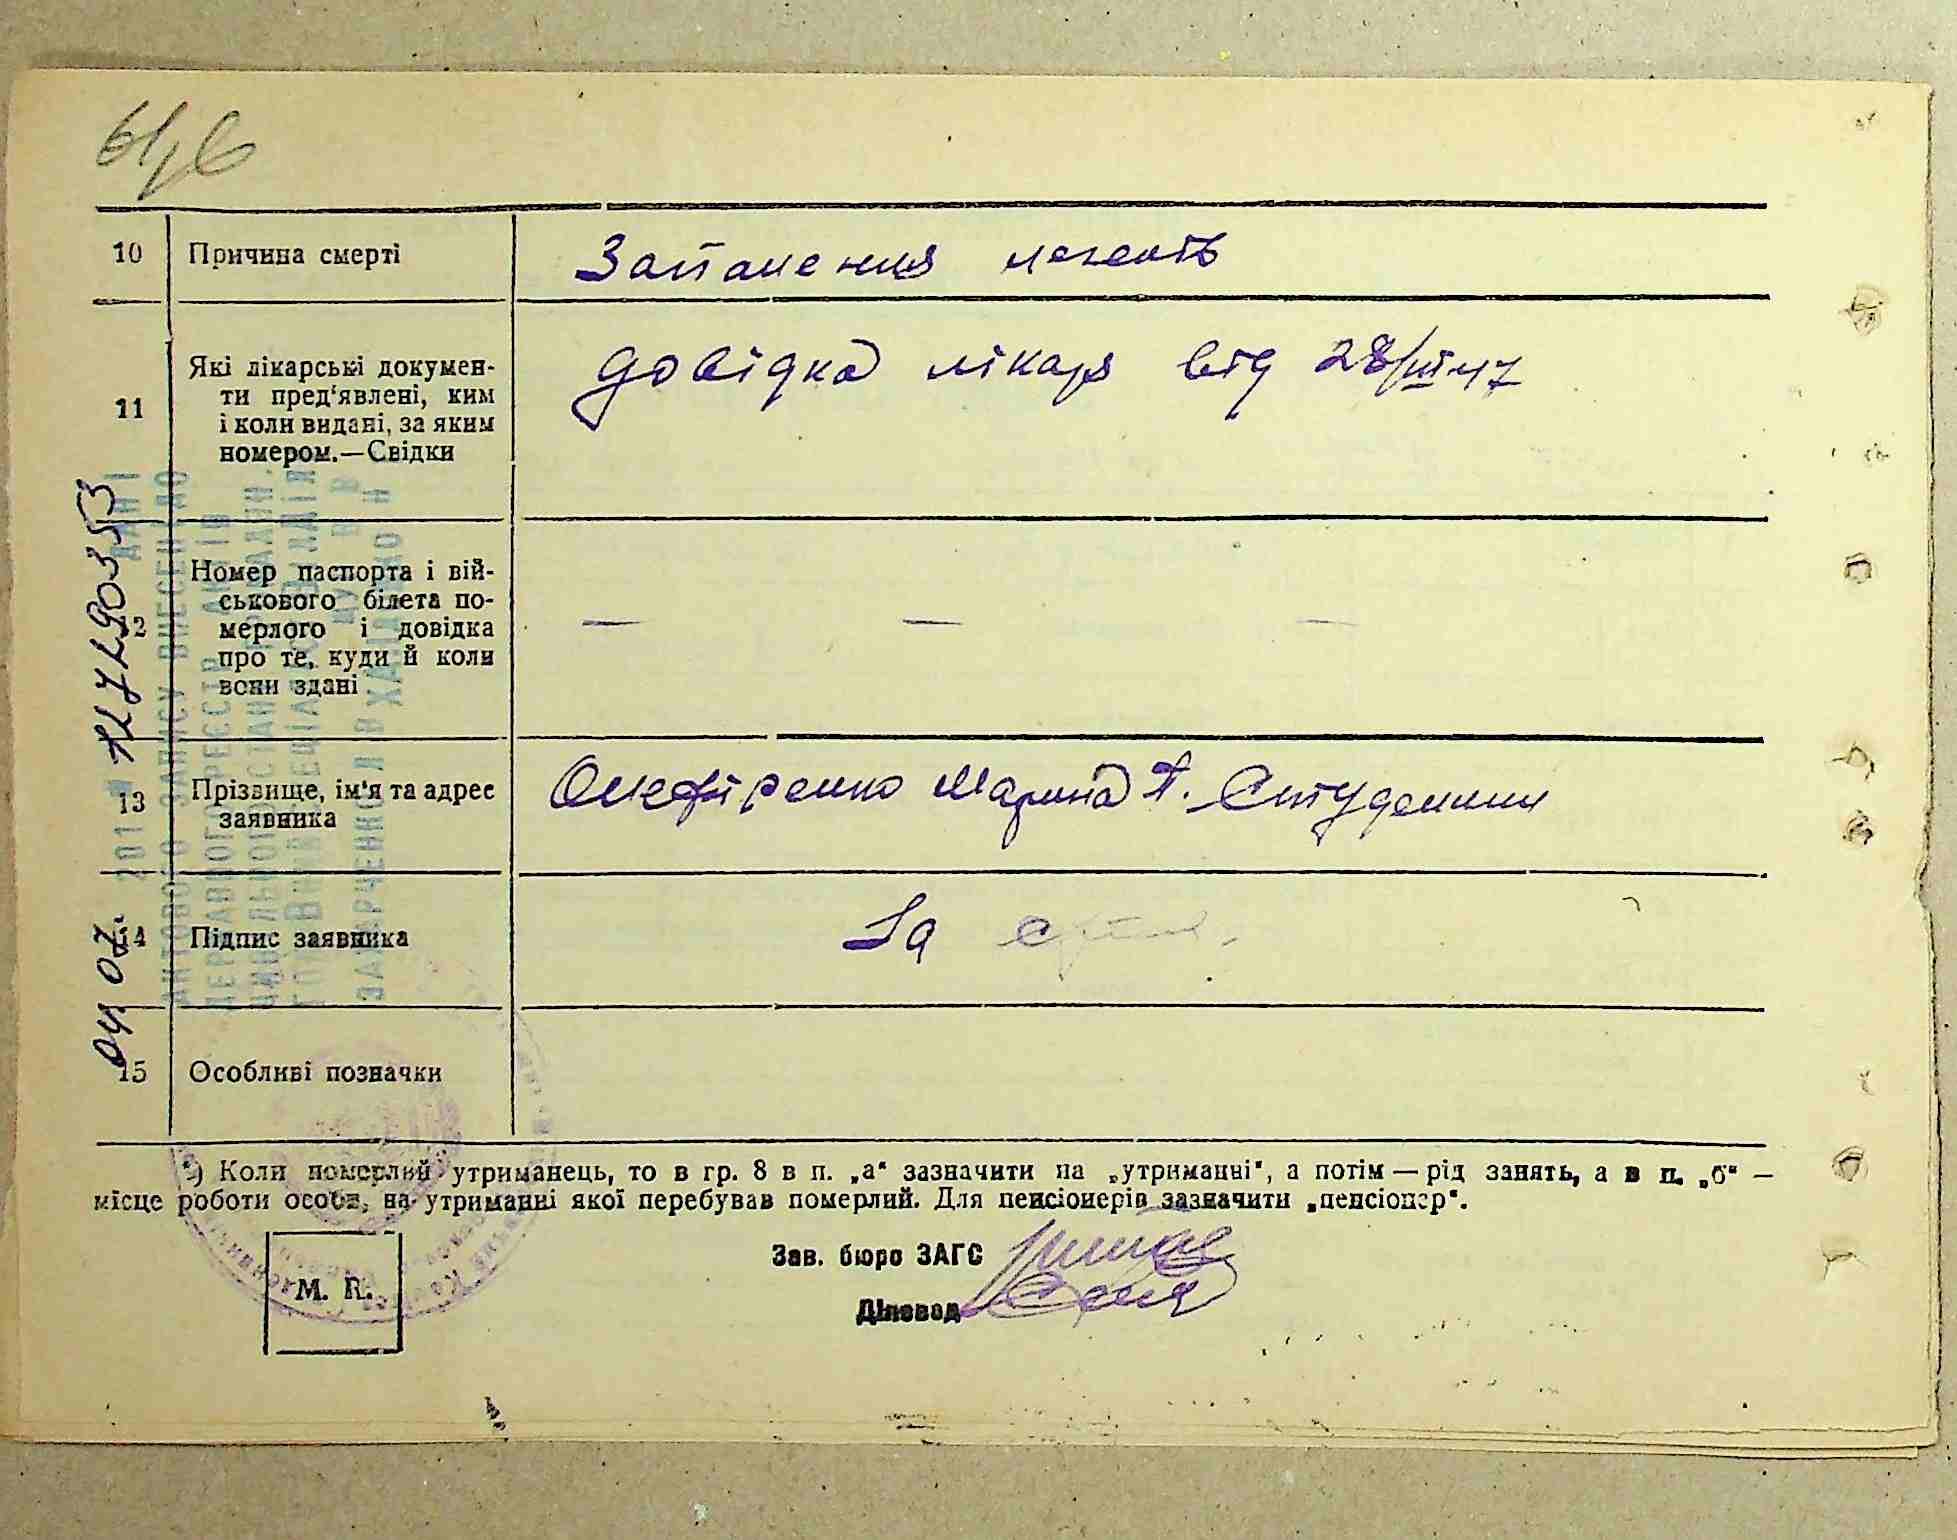 10 Причина смерті Запалення легень
11 Які лікарські докумен-
ти пред'явлені, ким
і коли видані, за яким
номером.—Свідки
довідка лікаря від 28/III 47
12 Номер паспорта і вій-
ськового білета по-
мерлого і довідка
про те, куди й коли
вони здані
— — —
13 Прізвище, ім'я та адрес
заявника
Онефіренко Марина П.
14 Підпис заявника За
15 Особливі позначки
*) Коли померлий утриманець, то в гр. 8 в п. „а“ зазначити на „утриманні“, а потім — рід занять, а в п. „б“ —
місце роботи особи, на утриманні якої перебував померлий. Для пенсіонерів зазначити „пенсіонер“.
Зав. бюро ЗАГС
Діловод
М. П.